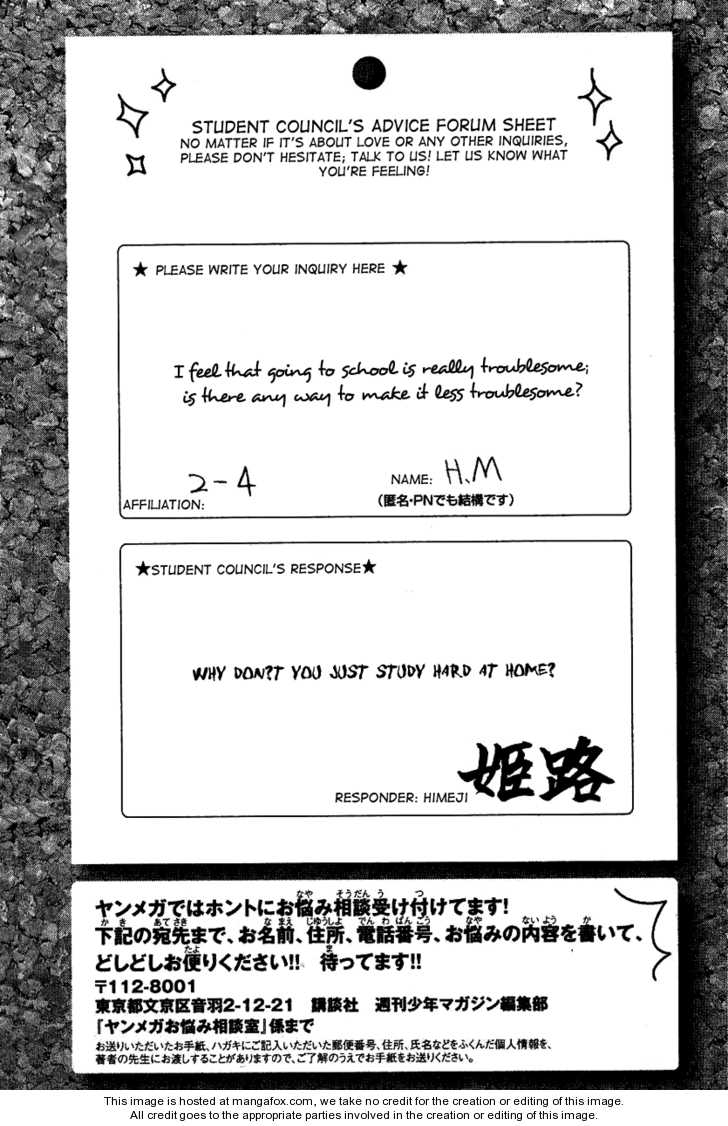 STUDENT COUNCIL'S ADVICE FORUM SHEET
NO MATTER IF IT'S ABOUT LOVE OR ANY OTHER INQUIRIES,
PLEASE DON'T HESITATE; TALK TO US! LET US KNOW WHAT
YOU'RE FEELING!
★ PLEASE WRITE YOUR INQUIRY HERE ★
I feel that going to school is really troublesome;
is there any way to make it less troublesome?
AFFILIATION: 2-4
NAME: H.M
(匿名・PNでも結構です)
★STUDENT COUNCIL'S RESPONSE★
WHY DON?T YOU JUST STUDY HARD AT HOME?
RESPONDER: HIMEJI 姫路
なや そうだん う つ
ヤンメガではホントにお悩み相談受け付けてます!
かき あてさき なまえ じゅうしょ でんわばんごう なや ないよう か
下記の宛先まで、お名前、住所、電話番号、お悩みの内容を書いて、
たよ ま
どしどしお便りください!! 待ってます!!
〒112-8001
東京都文京区音羽2-12-21 講談社 週刊少年マガジン編集部
『ヤンメガお悩み相談室』係まで
お送りいただいたお手紙、ハガキにご記入いただいた郵便番号、住所、氏名などをふくんだ個人情報を、
著者の先生にお渡しすることがありますので、ご了解のうえでお手紙をお送りください。
This image is hosted at mangafox.com, we take no credit for the creation or editing of this image.
All credit goes to the appropriate parties involved in the creation or editing of this image.